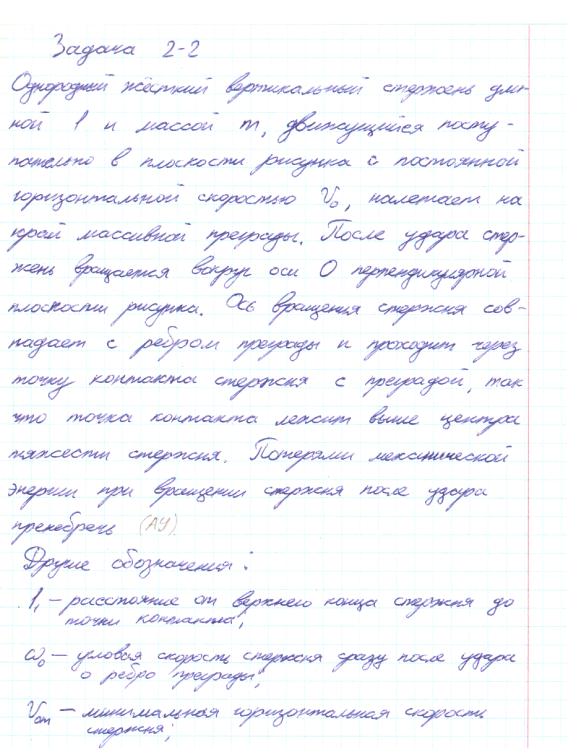 Задача 2-2
Однородный жёсткий вертикальный стержень дли-
ной l и массой m, движущийся посту-
пательно в плоскости рисунка с постоянной
горизонтальной скоростью V₀, налетает на
край массивной преграды. После удара стер-
жень вращается вокруг оси O перпендикулярной
плоскости рисунка. Ось вращения стержня сов-
падает с ребром преграды и проходит через
точку контакта стержня с преградой, так
что точка контакта лежит выше центра
тяжести стержня. Потерями механической
энергии при вращении стержня после удара
пренебречь (АУ).
Другие обозначения:
l₁ – расстояние от верхнего конца стержня до
точки контакта;
ω₀ – угловая скорость стержня сразу после удара
о ребро преграды;
V₀m – минимальная горизонтальная скорость
стержня;